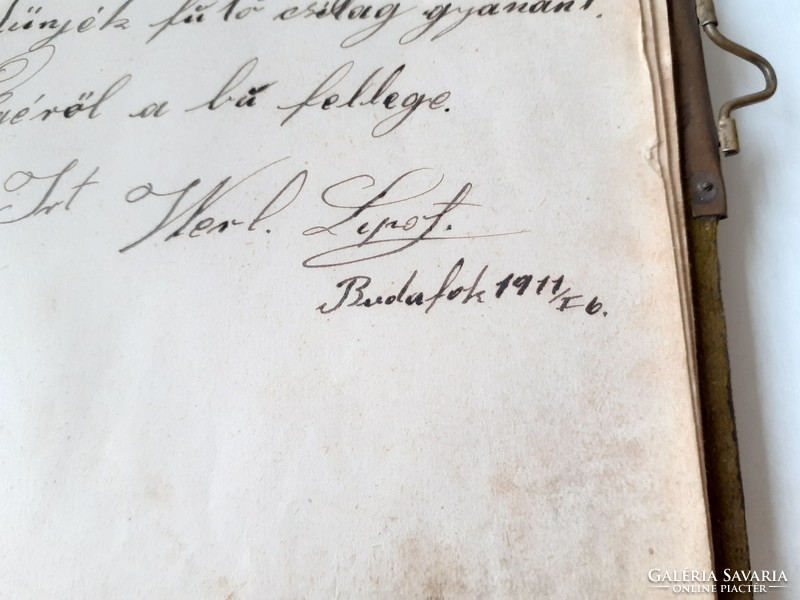 tünjék fűtó csilag gyanánt.
géről a bú fellege.
Irt Werl. Lipót.
Budafok 1911/I 6.
GALÉRIA SAVARIA
ONLINE PIACTÉR